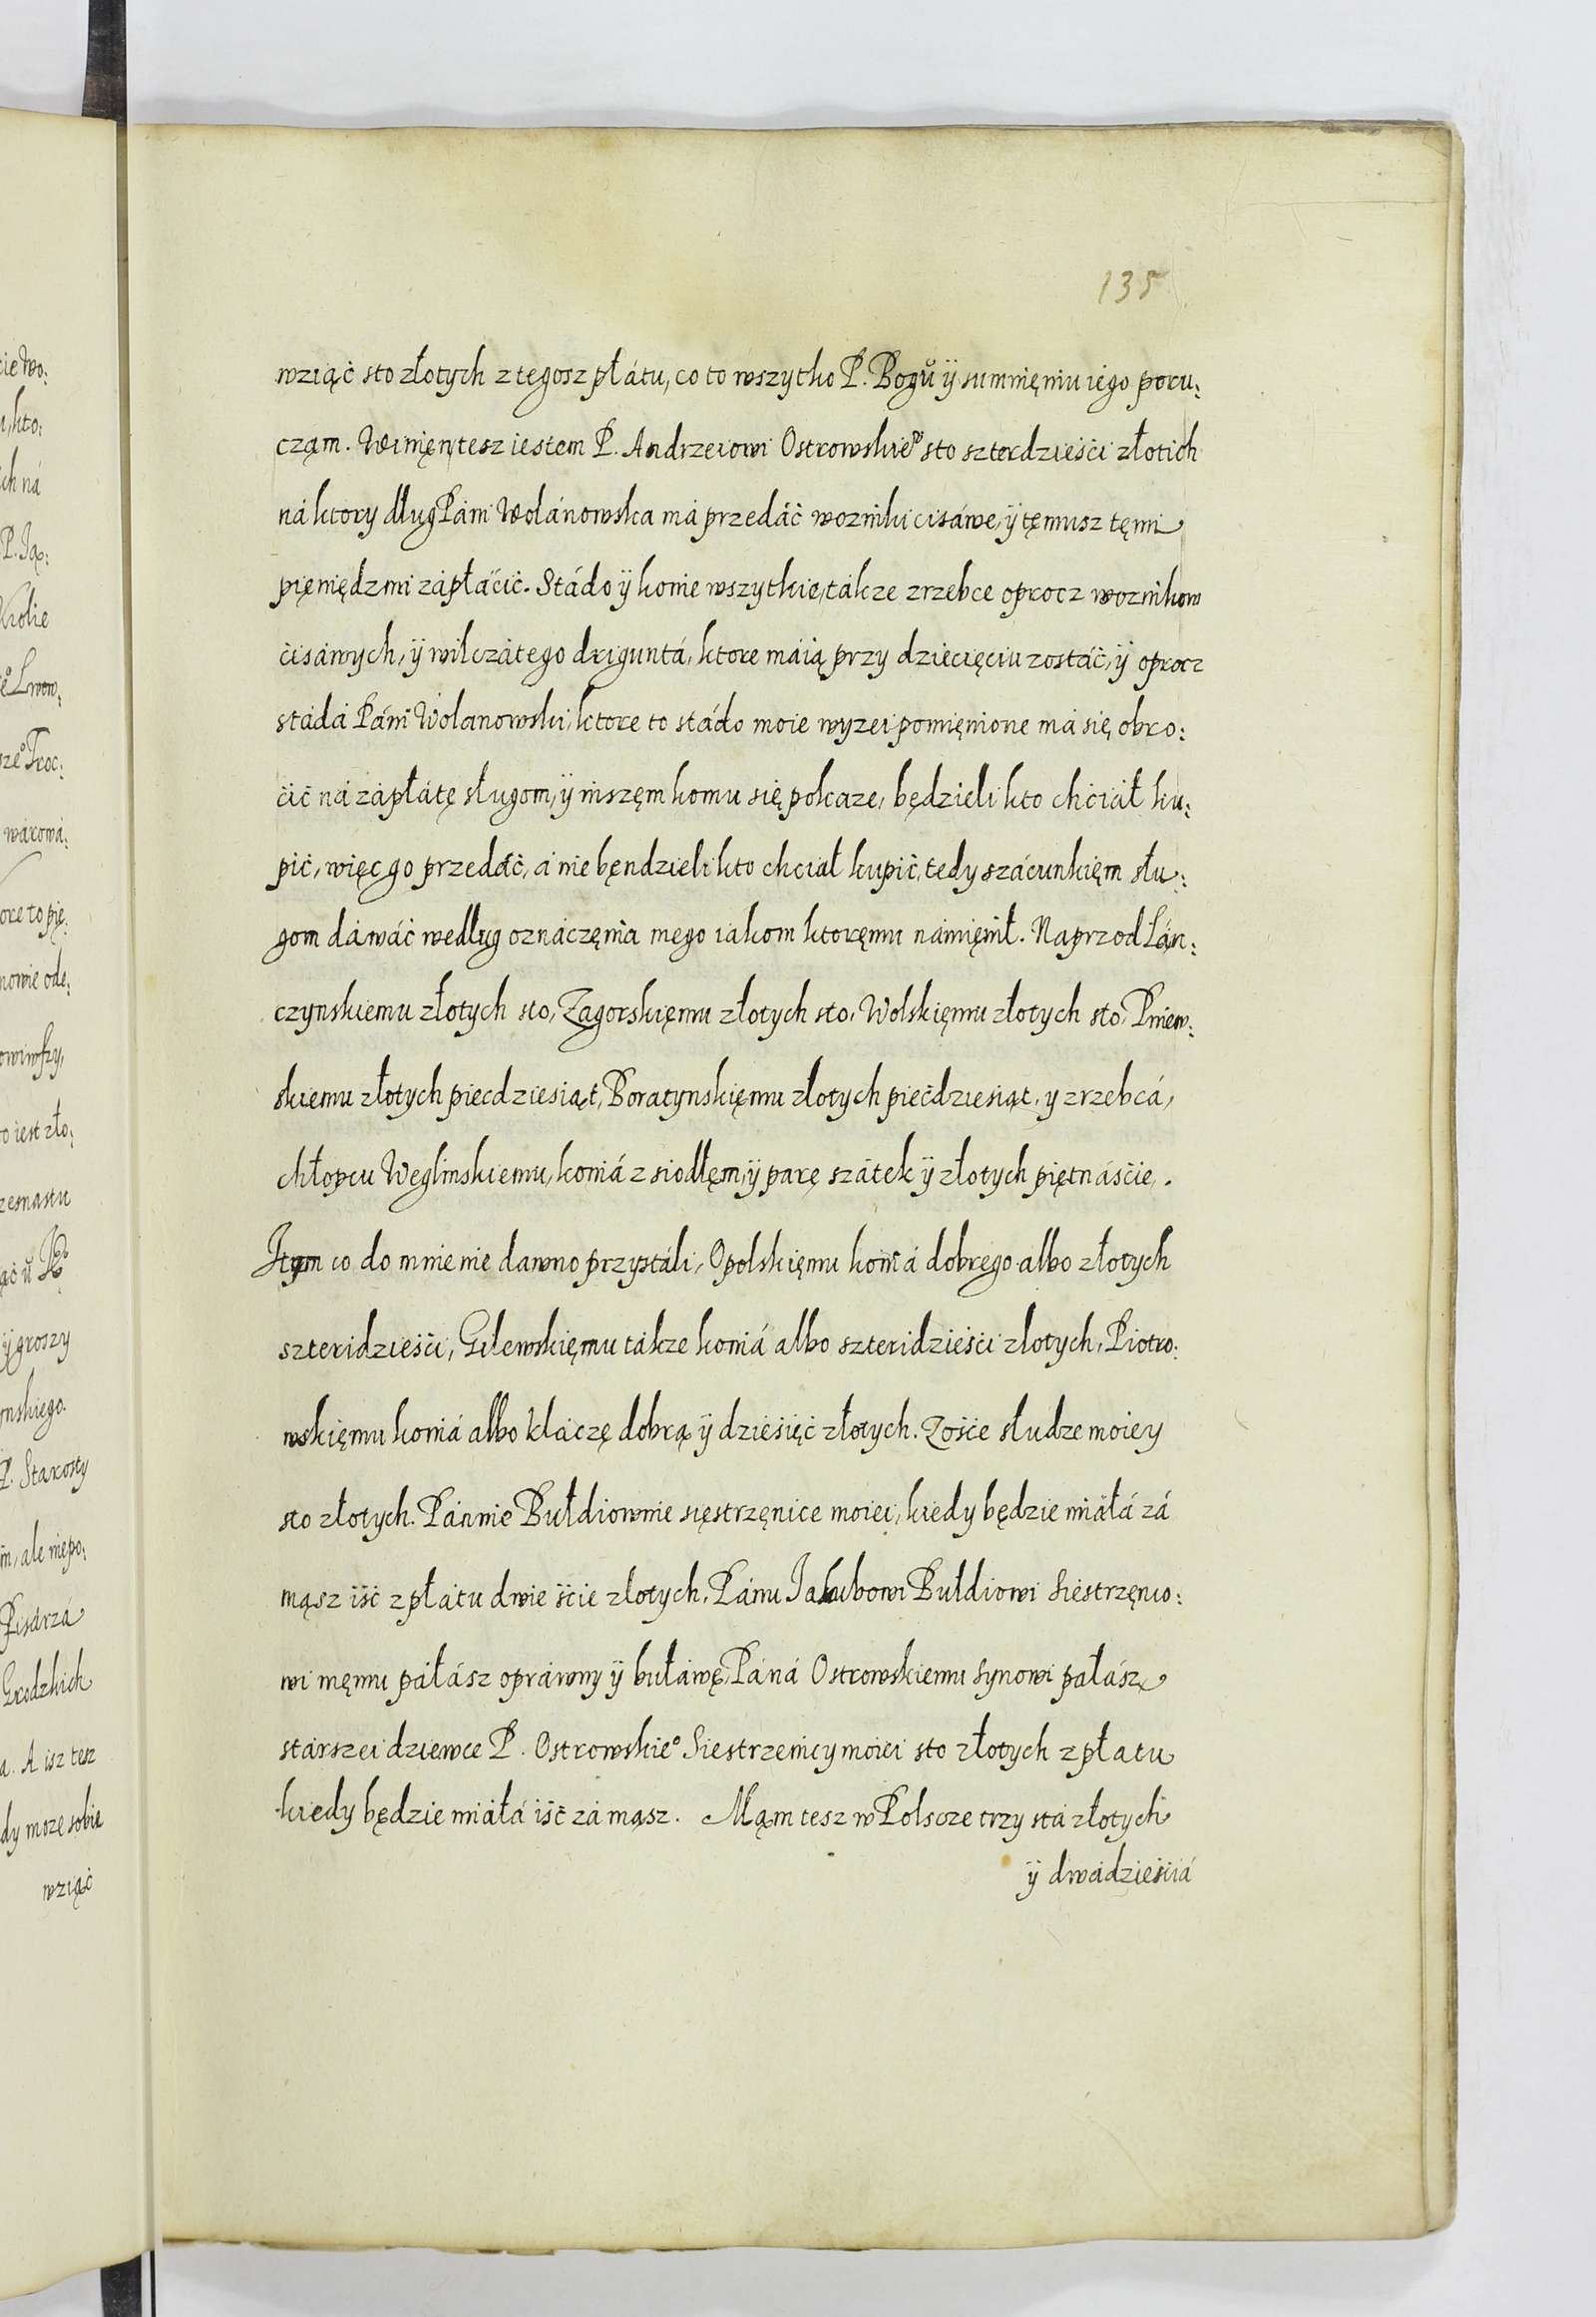 135
wziąć sto złotych z tegosz płátu, co to wszytko P. Bogů ÿ sumnięniu iego poru:
cząm. Winięn tesz iestem P. Andrzeiowi Ostrowskie° sto szterdzieści złotich
ná ktory dług Páni Wolánowska má przedáć wozniki cisáwe, ÿ tęmusz tęmi
pięniędzmi zápłácić. Stádo ÿ konie wszytkie, tákze zrzebce oprocz woznikow
cisáwych, ÿ wilczátego driguntá, ktore máią przy dziecięciu zostáć, ÿ oprocz
stádá Páni Wolanowski, ktore to stádo moie wyzei pomięnione má się obro:
cić ná zápłátę sługom, ÿ inszęm komu się pokaze, będzieli kto chciał ku:
pić, więc go przedáć, á nie bęndzieli kto chciał kupić, tedy szácunkięm słu:
gom dáwáć według oznáczęnia mego iakom ktoręmu námięnił. Naprzod Łán:
czynskiemu złotych sto, Zagorskięmu złotych sto, Wolskięmu złotych sto, Pniew:
skiemu złotych piecdziesiąt, Boratynskięmu złotych piećdziesiąt, y zrzebcá,
chłopcu Weglinskiemu, koniá z siodłęm, ÿ parę szátek ÿ złotych piętnáście.
Itym co do mnie nie dawno przystáli, Opolskięmu koniá dobrego albo złotych
szteridzieści, Gilewskięmu takze koniá albo szteridzieści zlotych, Piotro:
wskięmu koniá albo kláczę dobrą ÿ dziesięć złotych. Zośce słudze moiey
sto złotych. Pánnie Bułdiownie sięstrzęnice moiei, kiedy będzie miáłá zá
mąsz iść z płátu dwie ście zlotych. Pánu Jakubowi Bułdiowi siestrzęnio:
wi męmu páłász opráwny ÿ buławę, Páná Ostrowskiemu synowi pałász
stárszei dziewce P. Ostrowskie° siestrzenicy moiei sto złotych z płatu
kiedy będzie miáłá iść zá mąsz. Mąm tesz w Polscze trzy stá złotych
ÿ dwádzieściá